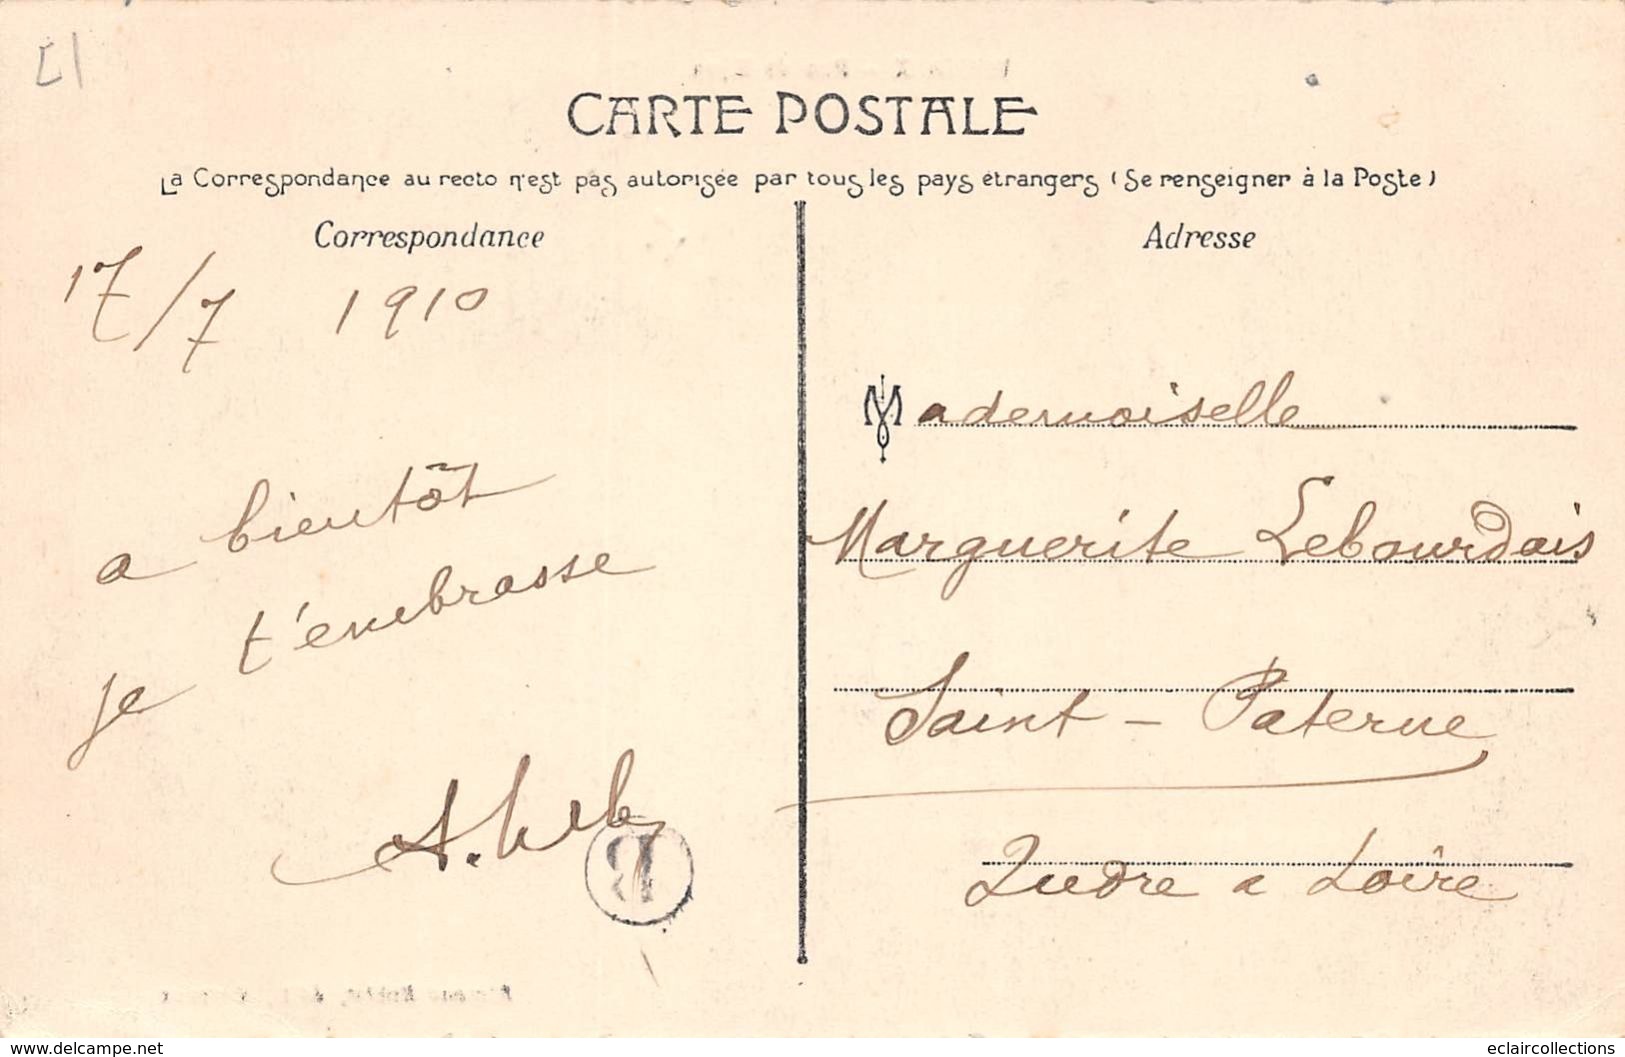 CARTE POSTALE
La Correspondance au recto n'est pas autorisée par tous les pays étrangers (Se renseigner à la Poste)
Correspondance
17/7 1910
a bientôt
je t'embrasse
B
Adresse
Mademoiselle
Marguerite Lebourdais
Saint-Paterne
Indre a Loire
www.delcampe.net
eclaircollections